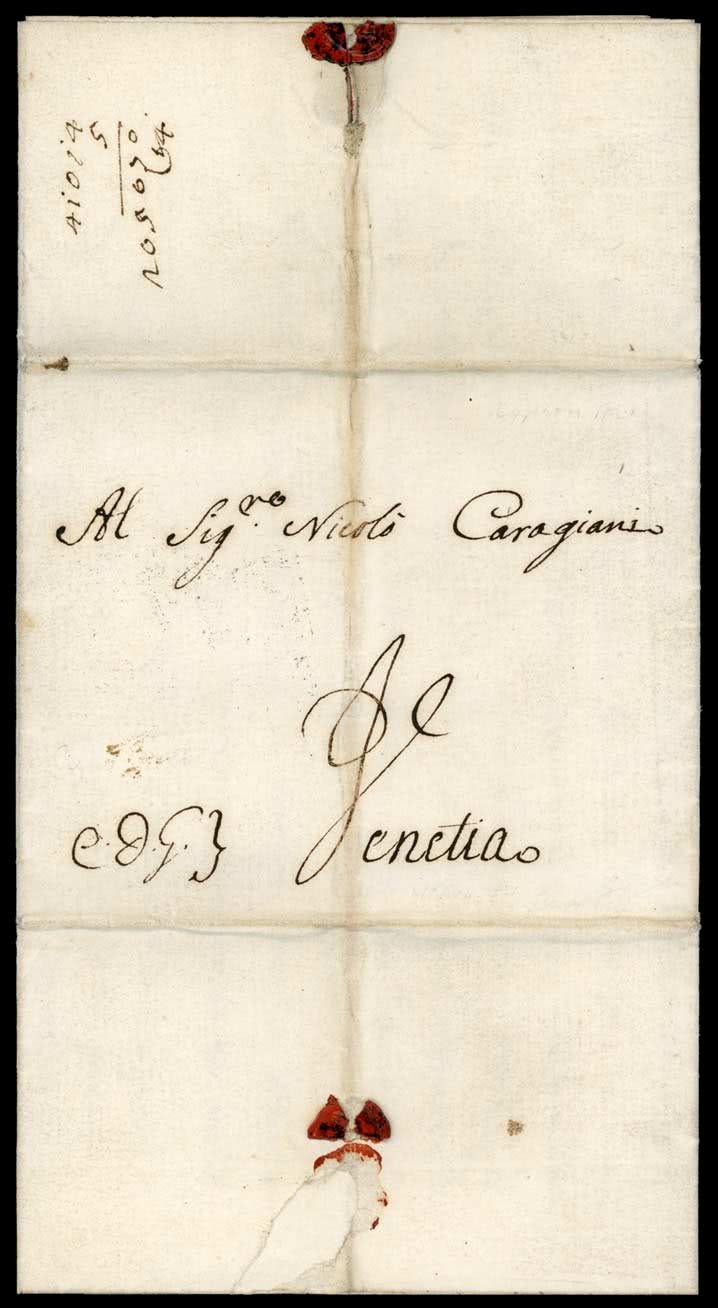 41014
5
205070
Al Sig.re Nicolò Caragiani
Venetia
C. D. G. }